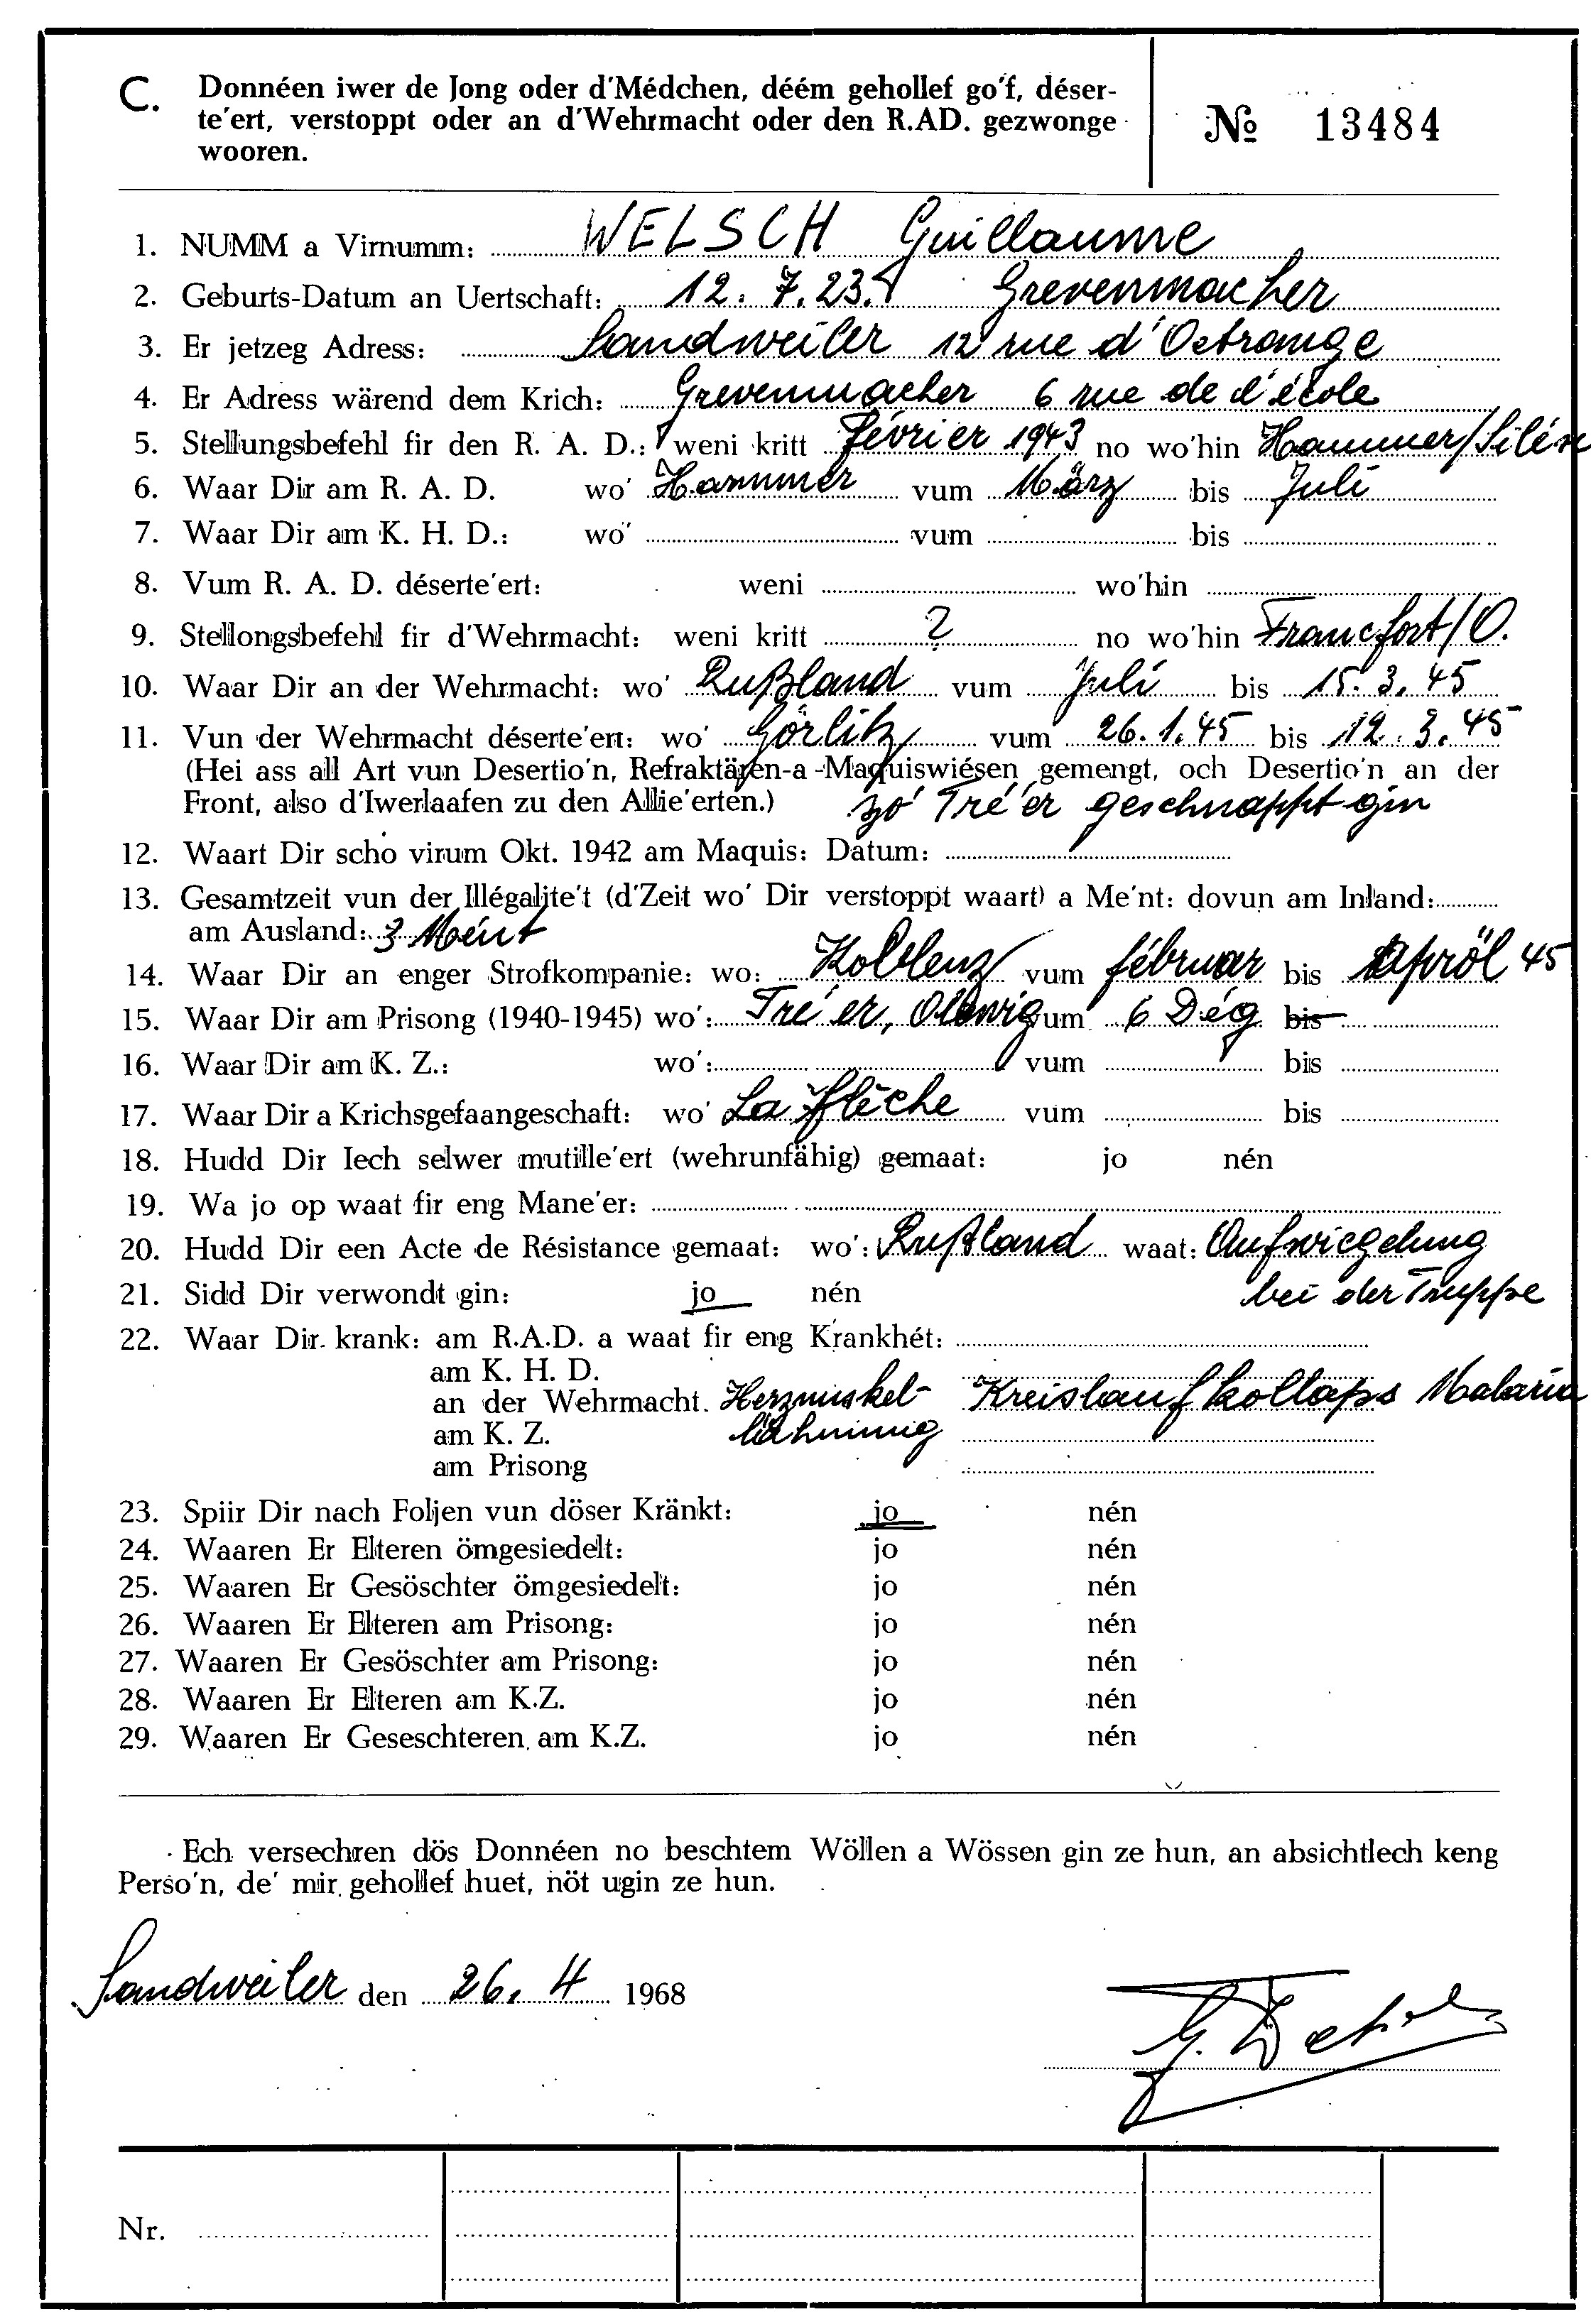 C. Donnéen iwer de Jong oder d'Médchen, déém gehollef go'f, déser-
te'ert, verstoppt oder an d'Wehrmacht oder den R.AD. gezwonge
wooren.
№ 13484
1. NUMM a Virnumm: WELSCH Guillaume
2. Geburts-Datum an Uertschaft: 12. 7. 23. Grevenmacher
3. Er jetzeg Adress: Sandweiler 12 rue d'Oetrange
4. Er Adress wärend dem Krich: Grevenmacher 6 rue de l'école
5. Stellungsbefehl fir den R. A. D.: weni kritt février 1943 no wo'hin Hammer/Silésie
6. Waar Dir am R. A. D. wo' Hammer vum März bis Juli
7. Waar Dir am K. H. D.: wo' vum bis
8. Vum R. A. D. déserte'ert: weni wo'hin
9. Stellongsbefehl fir d'Wehrmacht: weni kritt ? no wo'hin Francfort/O.
10. Waar Dir an der Wehrmacht: wo' Rußland vum Juli bis 15. 3. 45
11. Vun der Wehrmacht déserte'ert: wo' Görlitz vum 26. 1. 45 bis 12. 3. 45
(Hei ass all Art vun Desertio'n, Refraktären-a -Maquiswiésen gemengt, och Desertio'n an der
Front, also d'Iwerlaafen zu den Allie'erten.) zo' Tré'er geschnappt gin
12. Waart Dir scho virum Okt. 1942 am Maquis: Datum:
13. Gesamtzeit vun der Illégalite't (d'Zeit wo' Dir verstoppt waart) a Me'nt: dovun am Inland:
am Ausland: 3 Mént
14. Waar Dir an enger Strofkompanie: wo: Koblenz vum februar bis Apröl 45
15. Waar Dir am Prisong (1940-1945) wo': Tré'er, vum 6 Dég bis
16. Waar Dir am K. Z.: wo': vum bis
17. Waar Dir a Krichsgefaangeschaft: wo' La Flèche vum bis
18. Hudd Dir Iech selwer mutille'ert (wehrunfähig) gemaat: jo nén
19. Wa jo op waat fir eng Mane'er:
20. Hudd Dir een Acte de Résistance gemaat: wo': Rußland waat: Aufwiegelung
bei der Truppe
21. Sidd Dir verwondt gin: jo nén
22. Waar Dir krank: am R.A.D. a waat fir eng Krankhét:
am K. H. D.
an der Wehrmacht. Herzmuskel- Kreislaufkollaps Malaria
am K. Z. lähmung
am Prisong
23. Spiir Dir nach Foljen vun döser Kränkt: jo nén
24. Waaren Er Elteren ömgesiedelt: jo nén
25. Waaren Er Gesöschter ömgesiedelt: jo nén
26. Waaren Er Elteren am Prisong: jo nén
27. Waaren Er Gesöschter am Prisong: jo nén
28. Waaren Er Elteren am K.Z. jo nén
29. Waaren Er Geseschteren am K.Z. jo nén
Ech versechren dös Donnéen no beschtem Wöllen a Wössen gin ze hun, an absichtlech keng
Perso'n, de' mir gehollef huet, nöt ugin ze hun.
Sandweiler den 26. 4 1968
Nr.